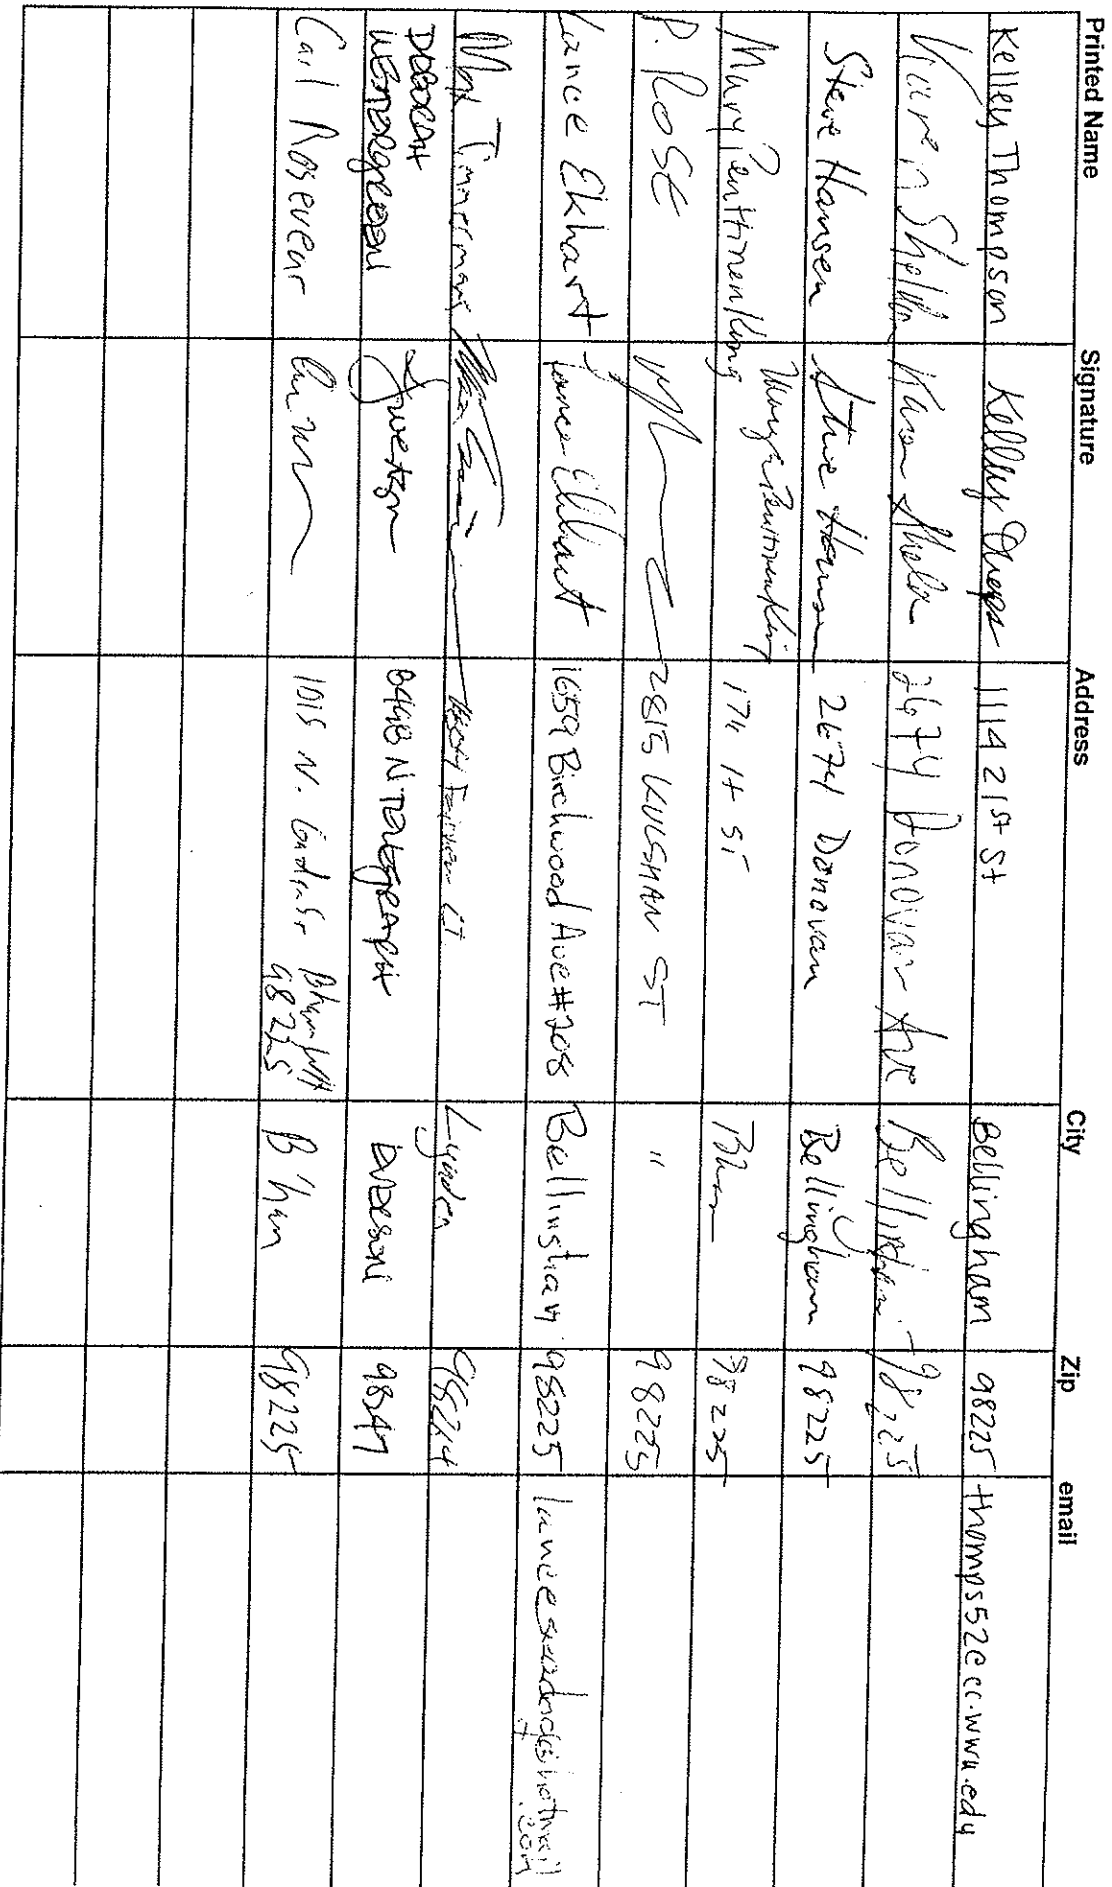 Printed Name Signature Address City Zip email
Kelley Thompson Kelley 1114 21st St Bellingham 98225 thomps52@cc.wwu.edu
Karen Shelton Karen 2674 Donovan Ave Bellingham 98225
Steve Hansen Steve Hansen 2674 Donovan Bellingham 98225
Mary Penttinen King Mary Penttinen King 1711 H ST Bham 98225
P. ROSE 2815 KULSHAN ST " 98225
Lance Ekhart Lance Ekhart 1659 Birchwood Ave #208 Bellingham 98225
hotmail
.com
Max Timmermans CT. Lynden 98264
DEBORAH
8498 N TELEGRAPH 98247
Carl Rosevear 1015 N. Garden St Bham WA B'ham 98225
98225